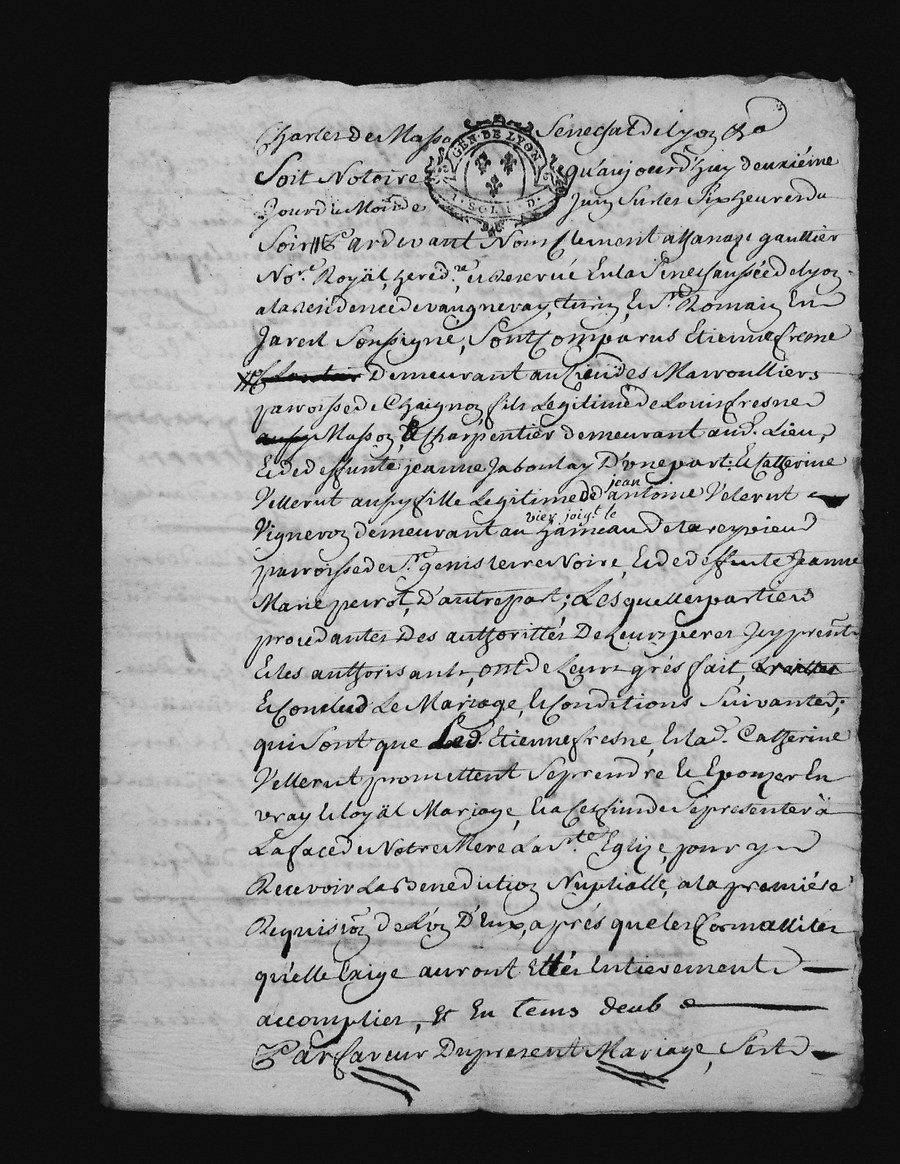 Charles de Masso Senechal de Lyon &a
GEN. DE LYON
1. SOL. D.
Soit Notoire qu'aujourd'huy deuxiéme
Jour du Mois de Juin Sur les Six heures du
Soir Pardevant Nous Clement athanaze gaultier
Nore. Royäl, hered.re et Reservé En la Senechaussée de lyon
a la Residence de vaugneray, turin, & St. Romain En
Jarest Soussigné, Sont Comparus Etienne fresne
Demeurant au Lieu des Marroulliers
paroisse de Chaignon fils Legitime de Louis fresne
Masson, & Charpentier demeurant aud. Lieu,
Et de deffunte jeanne Jaboulay D'une part. Et Catherine
Vellerut aussy fille Legitime de jean antoine Velerut
Vigneron demeurant au vier joigt. le hameau de la reypieu
paroisse de St. genis terre Noire, Et de deffunte Jeanne
Marie peirot, D'autre part; Lesquelles parties
procedantes des authorittés De Leurs peres Icy presents
Et les authorisants, ont de Leurs grés fait,
Et Conclud Le Mariage, & Conditions Suivantes;
qui Sont que Led. Etienne fresne, Et lad. Catherine
Vellerut promettent Se prendre & Epouzer En
vray & loyäl Mariage, Et a Cet fin de Se presenter à
La face de Notre Mere La Ste. Eglize, pour y
Recevoir La Benediction Nuptialle, a la premiére
Requision de L'un D'Eux, aprés que les formallités
qu'elle Exige auront Ettés Entierement
accomplies, Et En tems deub
Par faveur Du present Mariage, S'est